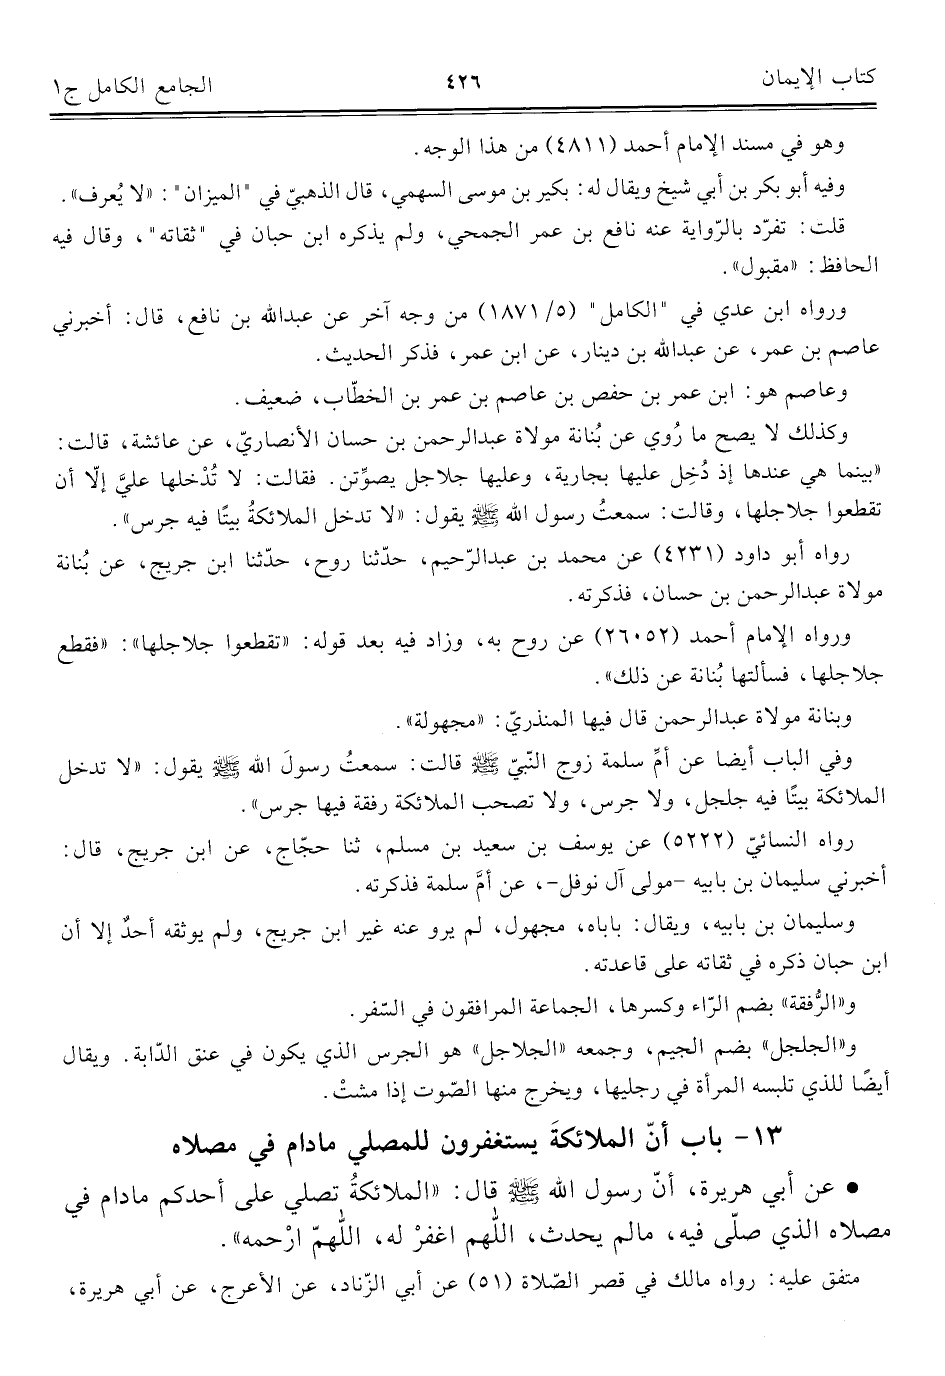 كتاب الإيمان ٤٢٦ الجامع الكامل ج١
وهو في مسند الإمام أحمد (٤٨١١) من هذا الوجه.
وفيه أبو بكر بن أبي شيخ ويقال له: بكير بن موسى السهمي، قال الذهبيّ في "الميزان": «لا يُعرف».
قلت: تفرّد بالرّواية عنه نافع بن عمر الجمحي، ولم يذكره ابن حبان في "ثقاته"، وقال فيه
الحافظ: «مقبول».
ورواه ابن عدي في "الكامل" (٥/ ١٨٧١) من وجه آخر عن عبدالله بن نافع، قال: أخبرني
عاصم بن عمر، عن عبدالله بن دينار، عن ابن عمر، فذكر الحديث.
وعاصم هو: ابن عمر بن حفص بن عاصم بن عمر بن الخطّاب، ضعيف.
وكذلك لا يصح ما رُوي عن بُنانة مولاة عبدالرحمن بن حسان الأنصاريّ، عن عائشة، قالت:
«بينما هي عندها إذ دُخِل عليها بجارية، وعليها جلاجل يصوِّتن. فقالت: لا تُدْخلها عليَّ إلّا أن
تقطعوا جلاجلها، وقالت: سمعتُ رسول الله ﷺ يقول: «لا تدخل الملائكةُ بيتًا فيه جرس».
رواه أبو داود (٤٢٣١) عن محمد بن عبدالرّحيم، حدّثنا روح، حدّثنا ابن جريج، عن بُنانة
مولاة عبدالرحمن بن حسان، فذكرته.
ورواه الإمام أحمد (٢٦٠٥٢) عن روح به، وزاد فيه بعد قوله: «تقطعوا جلاجلها»: «فقطع
جلاجلها، فسألتها بُنانة عن ذلك».
وبنانة مولاة عبدالرحمن قال فيها المنذريّ: «مجهولة».
وفي الباب أيضا عن أمِّ سلمة زوج النّبيّ ﷺ قالت: سمعتُ رسولَ الله ﷺ يقول: «لا تدخل
الملائكة بيتًا فيه جلجل، ولا جرس، ولا تصحب الملائكة رفقة فيها جرس».
رواه النسائيّ (٥٢٢٢) عن يوسف بن سعيد بن مسلم، ثنا حجّاج، عن ابن جريج، قال:
أخبرني سليمان بن بابيه -مولى آل نوفل-، عن أمَّ سلمة فذكرته.
وسليمان بن بابيه، ويقال: باباه، مجهول، لم يرو عنه غير ابن جريج، ولم يوثقه أحدٌ إلا أن
ابن حبان ذكره في ثقاته على قاعدته.
و«الرُّفقة» بضم الرّاء وكسرها، الجماعة المرافقون في السّفر.
و«الجلجل» بضم الجيم، وجمعه «الجلاجل» هو الجرس الذي يكون في عنق الدّابة. ويقال
أيضًا للذي تلبسه المرأة في رجليها، ويخرج منها الصّوت إذا مشتْ.
١٣- باب أنّ الملائكةَ يستغفرون للمصلي مادام في مصلاه
• عن أبي هريرة، أنّ رسول الله ﷺ قال: «الملائكةُ تصلي على أحدكم مادام في
مصلاه الذي صلّى فيه، مالم يحدث، اللّهم اغفرْ له، اللّهمّ ارْحمه».
متفق عليه: رواه مالك في قصر الصّلاة (٥١) عن أبي الزّناد، عن الأعرج، عن أبي هريرة،